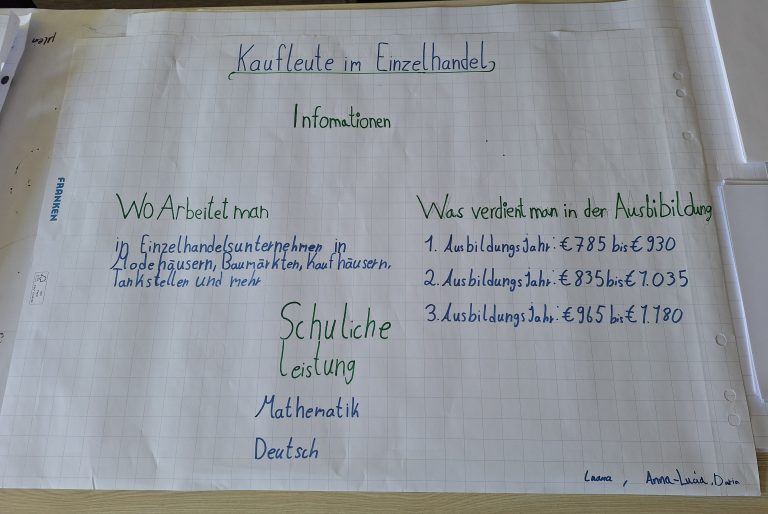 Kaufleute im Einzelhandel
Infomationen
Wo Arbeitet man
in Einzelhandelsunternehmen in
Modehäusern, Baumärkten, Kaufhäusern,
Tankstellen und mehr
Was verdient man in der Ausbibildung
1. Ausbildungs Jahr: € 785 bis € 930
2. Ausbildungs Jahr: € 835 bis € 1.035
3. Ausbildungs Jahr: € 965 bis € 1.180
Schuliche
Leistung
Mathematik
Deutsch
, Anna-Lucia, Daria
FRANKEN